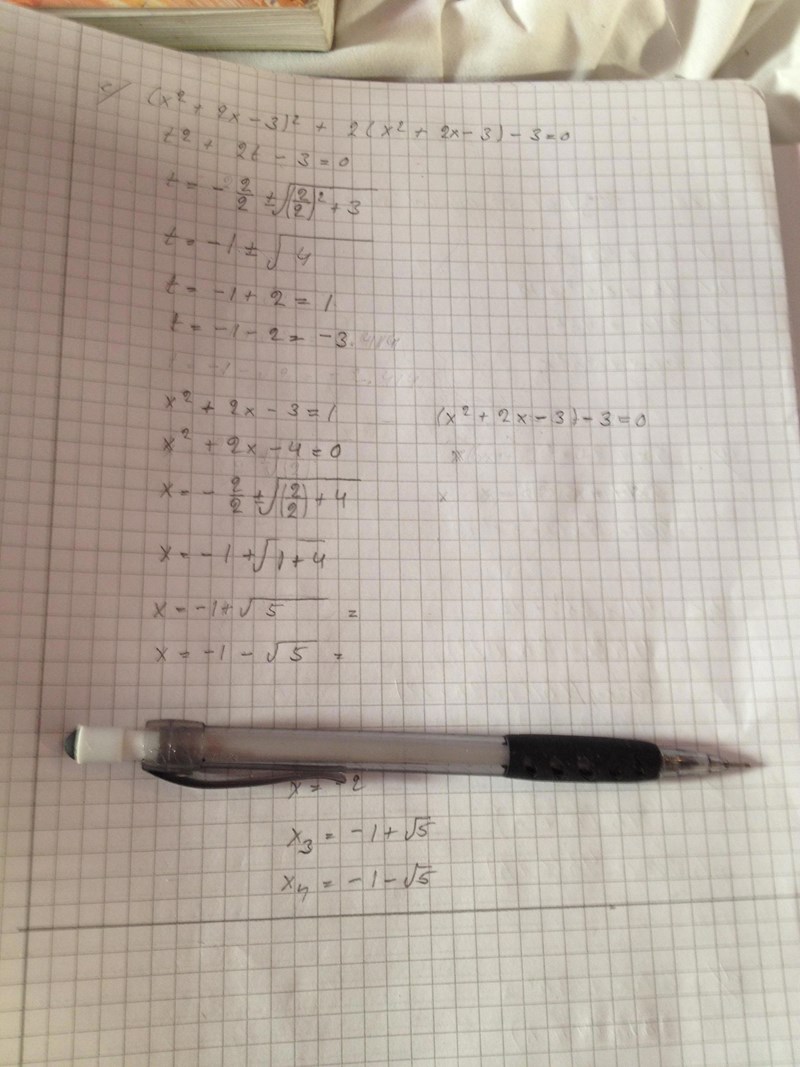 c) (x² + 2x - 3)² + 2(x² + 2x - 3) - 3 = 0
t² + 2t - 3 = 0
t = - 2/2 ± √((2/2)² + 3)
t = -1 ± √4
t = -1 + 2 = 1
t = -1 - 2 = -3
x² + 2x - 3 = 1
x² + 2x - 4 = 0
x = - 2/2 ± √((2/2) + 4)
x = -1 + √(1+4)
x = -1 + √5 =
x = -1 - √5 =
(x² + 2x - 3) - 3 = 0
x = -2
x₃ = -1 + √5
x₄ = -1 - √5